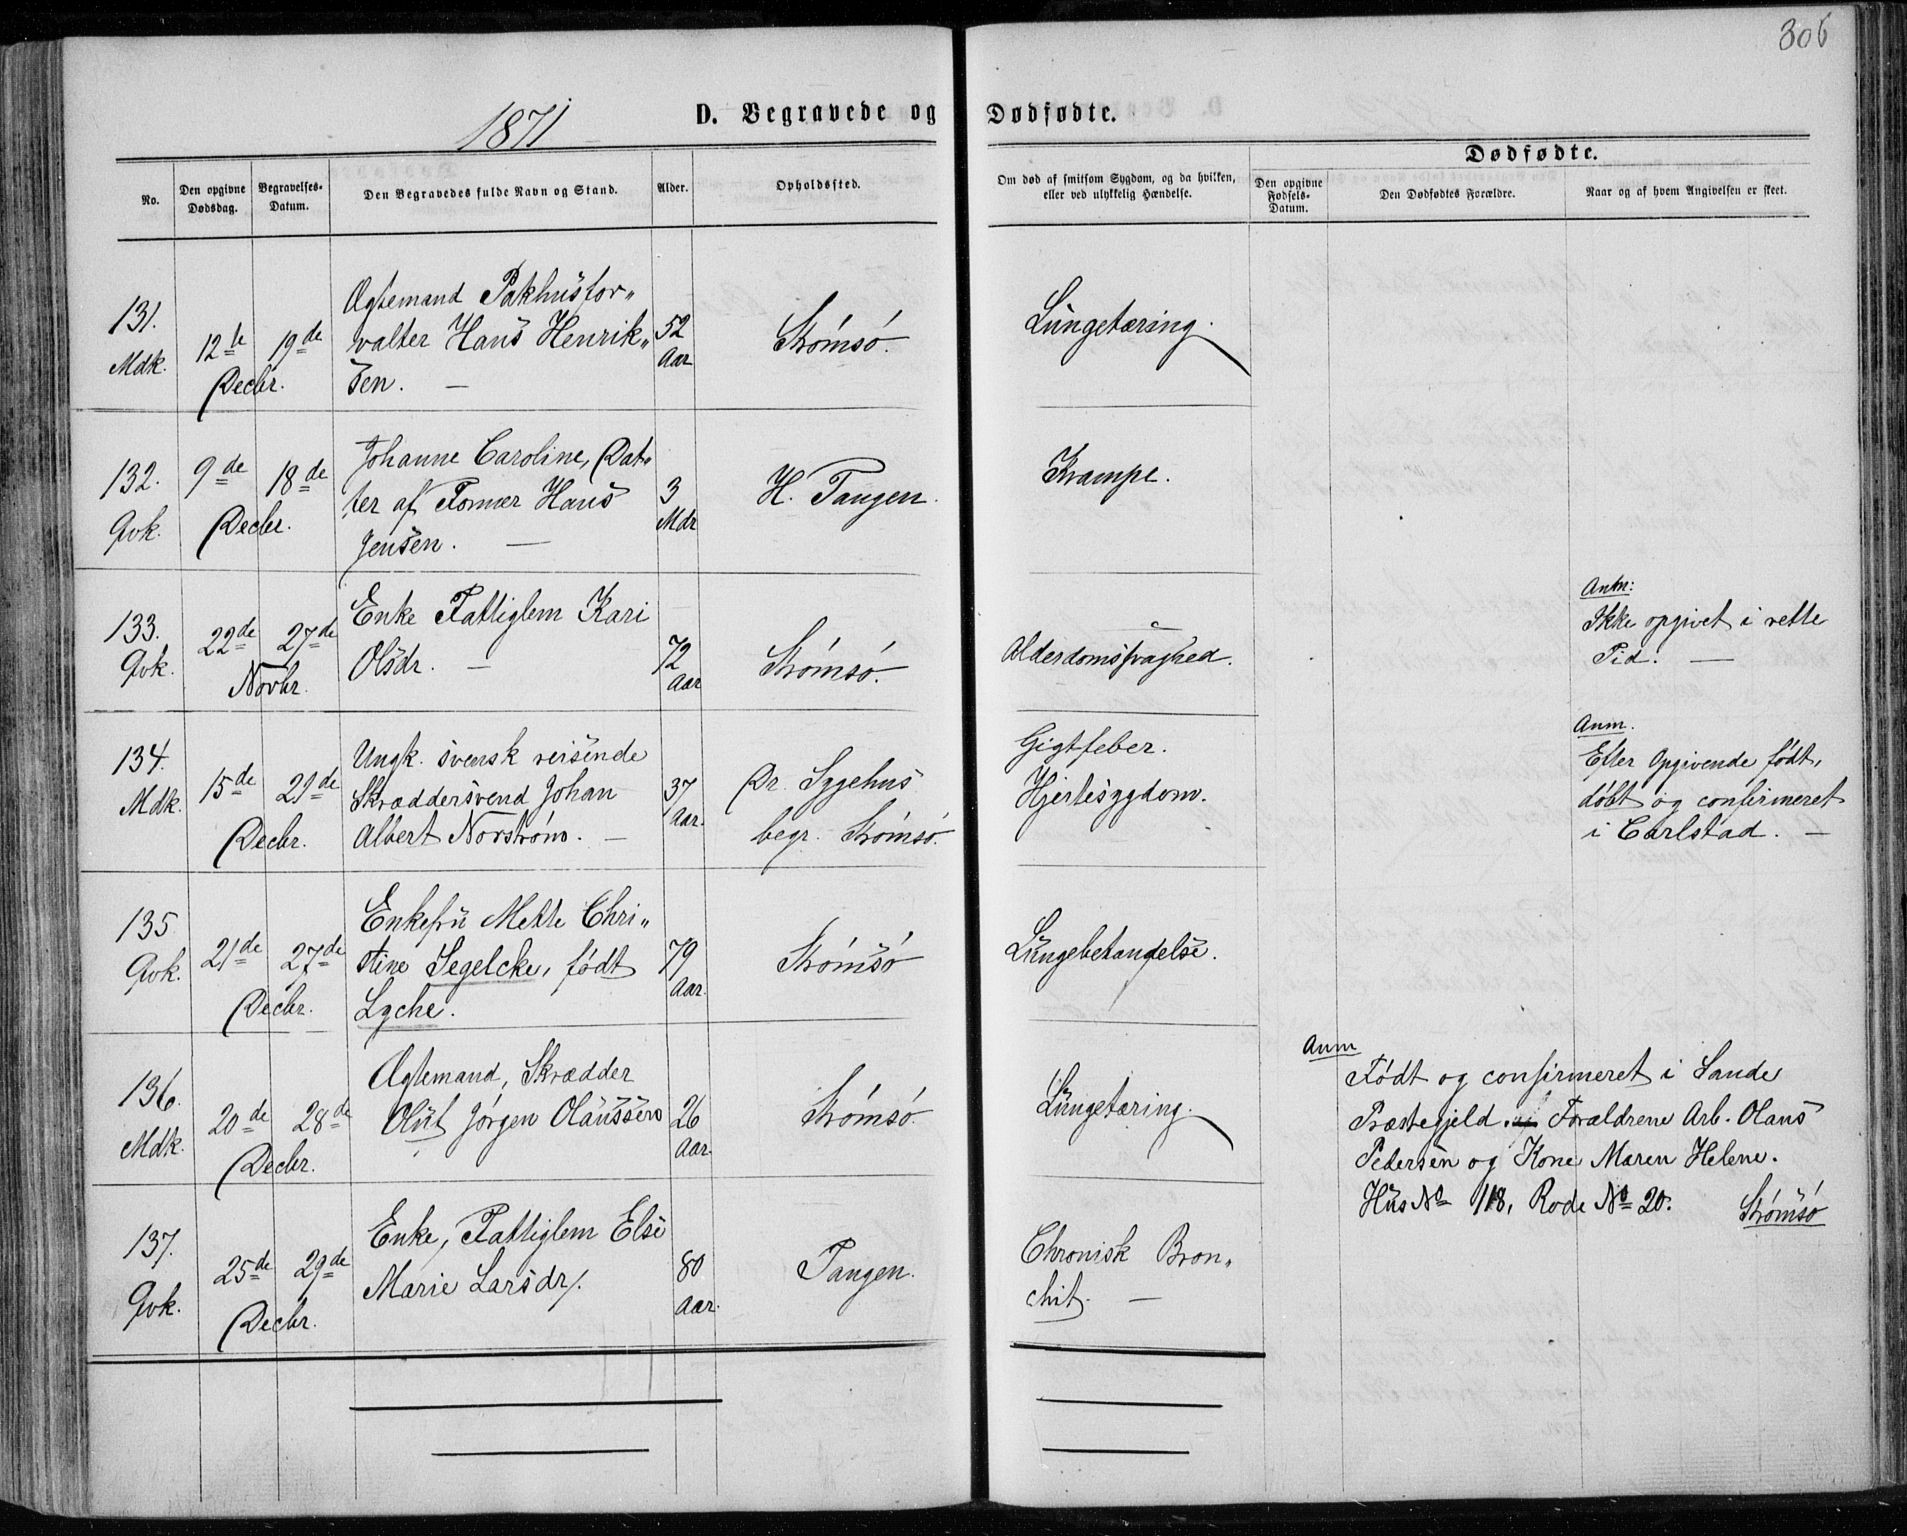 306
1871
D. Begravede og Dødfødte.
No.
Den opgivne Dødsdag.
Begravelses-Datum.
Den Begravedes fulde Navn og Stand.
Alder.
Opholdssted.
Om død af smitsom Sygdom, og da hvilken, eller ved ulykkelig Hændelse.
Dødfødte.
Den opgivne Fødsels-Datum.
Den Dødfødtes Forældre.
Naar og af hvem Angivelsen er skeet.
131.
Mdk.
12te 19de
Decbr.
Ægtemand Pakhusfor„
valter Hans Henrik„
sen. —
52
Aar
Strømsø.
Lungetæring.
132.
Qvk.
9de 18de
Decbr.
Johanne Caroline, Dat„
ter af Tomær Hans
Jensen. —
3
Mdr
H. Tangen.
Krampe.
133.
Qvk.
22de 27de
Novbr.
Enke Fattiglem Kari
Olsdr. —
72
Aar
Strømsø.
Alderdomssvaghed.
Anm:
Ikke opgivet i rette
Tid. —
134.
Mdk.
15de 21de
Decbr.
Ungk. svensk reisende
Skræddersvend Johan
Albert Norstrøm. —
37
Aar.
Dr. Sygehus
begr. Strømsø.
Gigtfeber.
Hjertesygdom.
Anm.
Efter Opgivende født,
døbt og confirmeret
i Carlstad. —
135
Qvk.
21de 27de
Decbr.
Enkefru Mette Chri„
stine Segelcke, født
Lyche.
79
Aar.
Strømsø
Lungebetændelse.
136.
Mdk.
20de 28de
Decbr.
Ægtemand, Skrædder
Oluf Jørgen Olaussen
26
Aar.
Strømsø.
Lungetæring.
Anm
Født og confirmeret i Sande
Præstegjeld. Forældrene Arb. Olaus
Pedersen og Kone Maren Helene.
Hus No 118, Rode No 20. Strømsø
137.
Qvk.
25de 29de
Decbr.
Enke, Fattiglem Else
Marie Larsdr.
80
Aar.
Tangen.
Chronisk Bron„
chit. —